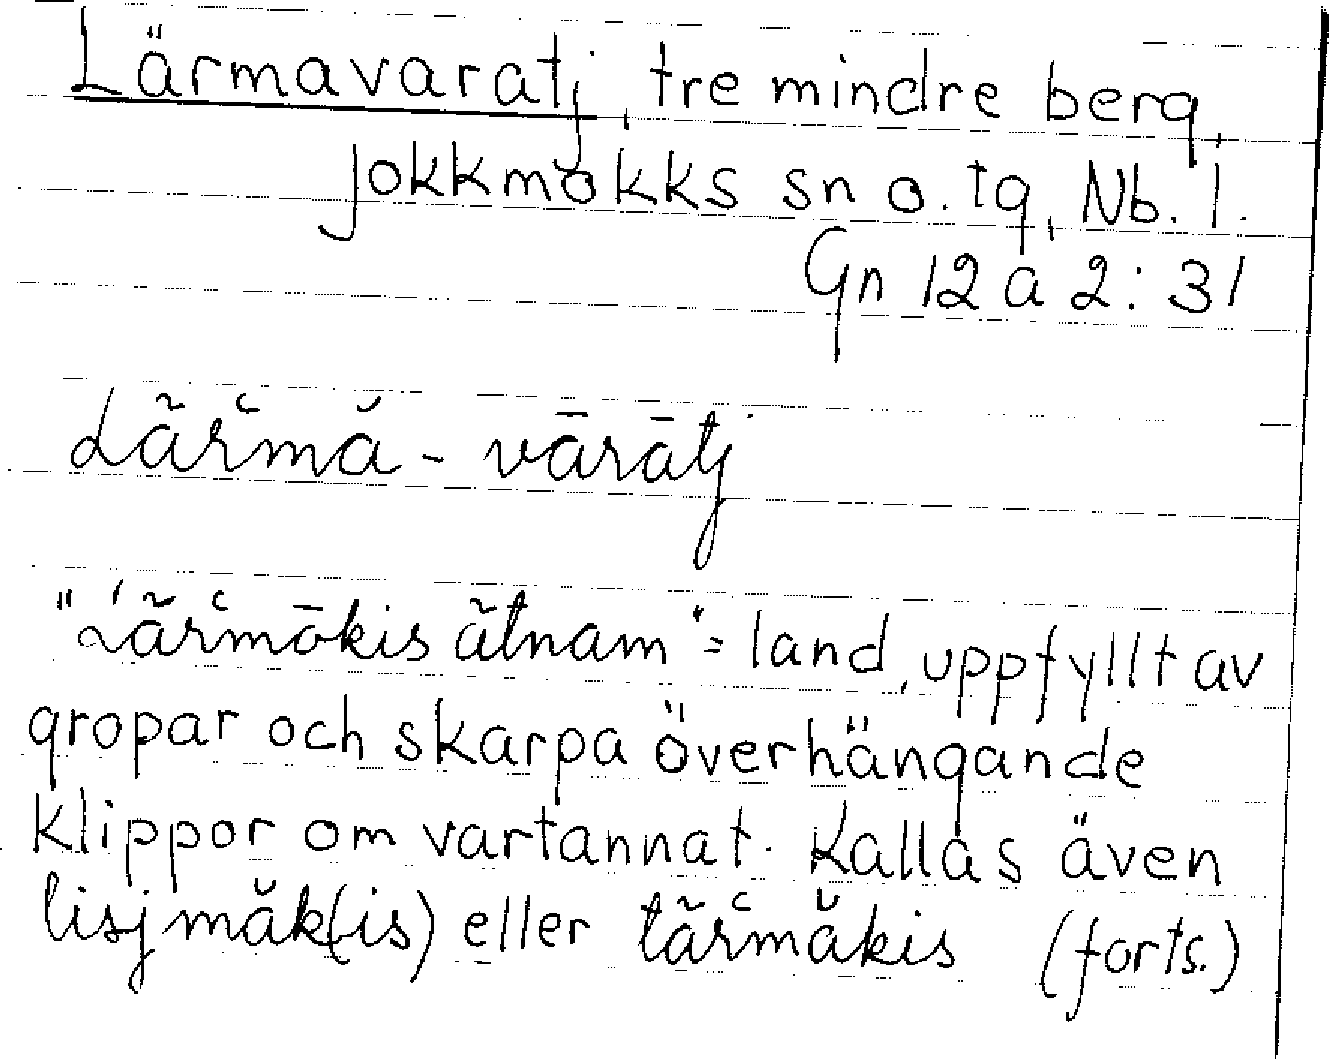 Lärmavaratj, tre mindre berg,
Jokkmokks sn o. tg, Nb. l.
Gn 12 a 2:31
Lãr̆mă-vārātj
"Lãr̆mōkis ãtnam" = land, uppfyllt av
gropar och skarpa överhängande
klippor om vartannat. Kallas även
lisjmăk(is) eller tãr̆măkis (forts.)